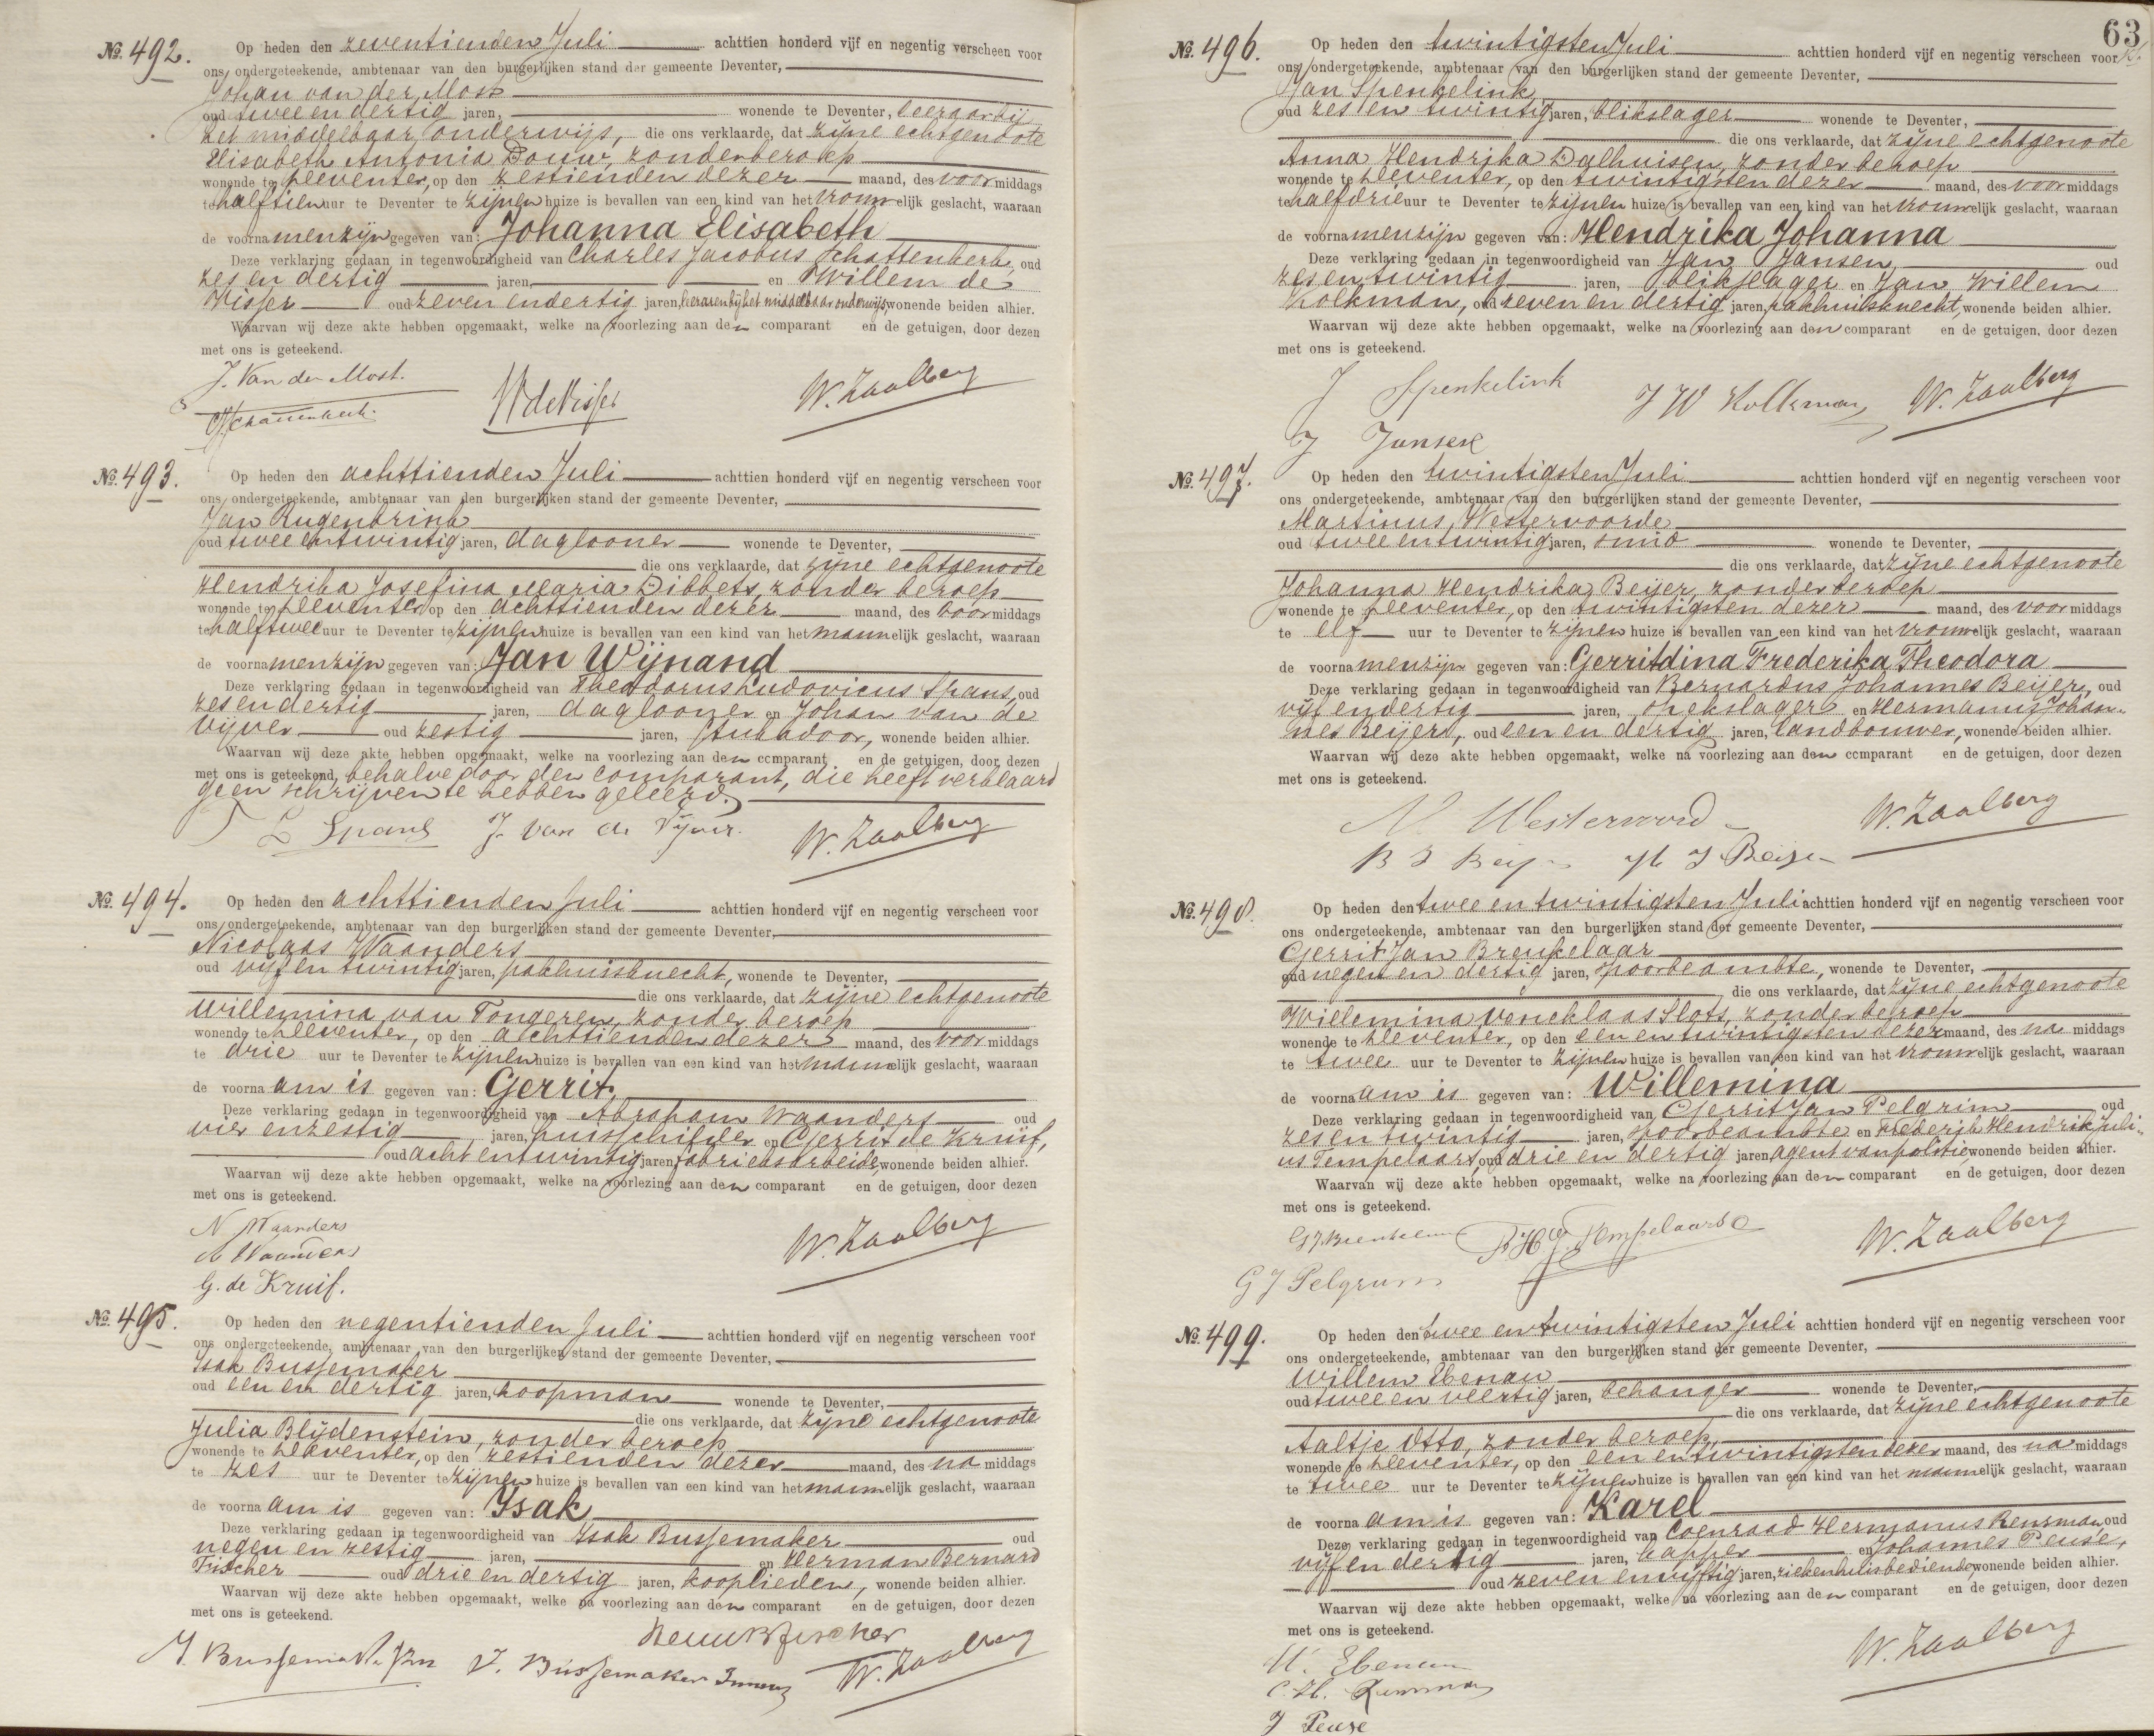 No. 492. Op heden den zeventienden Juli achttien honderd vijf en negentig verscheen voor
ons, ondergeteekende, ambtenaar van den burgerlijken stand der gemeente Deventer,
Johan van der Most
oud twee en dertig jaren, wonende te Deventer, leeraar bij
het middelbaar onderwijs, die ons verklaarde, dat zijne echtgenoote
Elisabeth Antonia Douw, zonder beroep
wonende te Deventer, op den zestienden dezer maand, des voormiddags
te half tien uur te Deventer te zijnen huize is bevallen van een kind van het vrouwelijk geslacht, waaraan
de voornamen zijn gegeven van: Johanna Elisabeth
Deze verklaring gedaan in tegenwoordigheid van Charles Jacobus Schattenkerk, oud
zes en dertig jaren, en Willem de
Visser oud zeven en dertig jaren, leraren bij het middelbaar onderwijs, wonende beiden alhier.
Waarvan wij deze akte hebben opgemaakt, welke na voorlezing aan den comparant en de getuigen, door dezen
met ons is geteekend.
J. Van der Most.
W de Visser
W. Zaalberg
No. 493. Op heden den achttienden Juli achttien honderd vijf en negentig verscheen voor
ons, ondergeteekende, ambtenaar van den burgerlijken stand der gemeente Deventer,
Jan Rugenbrink
oud twee en twintig jaren, daglooner wonende te Deventer,
die ons verklaarde, dat zijne echtgenoote
Hendrika Josefina Maria Dibbets, zonder beroep
wonende te Deventer op den achttienden dezer maand, des voormiddags
te half twee uur te Deventer te zijnen huize is bevallen van een kind van het mannelijk geslacht, waaraan
de voornamen zijn gegeven van: Jan Wijnand
Deze verklaring gedaan in tegenwoordigheid van Theodorus Ludovicus Spans, oud
zes en dertig jaren, daglooner en Johan van de
Vijver oud zestig jaren, stukadoor, wonende beiden alhier.
Waarvan wij deze akte hebben opgemaakt, welke na voorlezing aan den comparant en de getuigen, door dezen
met ons is geteekend, behalve door den comparant, die heeft verklaard
geen schrijven te hebben geleerd.
L Spans J. van de Vijver.
W. Zaalberg
No. 494. Op heden den achttienden Juli achttien honderd vijf en negentig verscheen voor
ons, ondergeteekende, ambtenaar van den burgerlijken stand der gemeente Deventer,
Nicolaas Waanders
oud vijf en twintig jaren, pakhuisknecht, wonende te Deventer,
die ons verklaarde, dat zijne echtgenoote
Willemina van Tongeren, zonder beroep
wonende te Deventer, op den achttienden dezer maand, des voormiddags
te drie uur te Deventer te zijnen huize is bevallen van een kind van het mannelijk geslacht, waaraan
de voornaam is gegeven van: Gerrit.
Deze verklaring gedaan in tegenwoordigheid van Abraham Waanders oud
vier en zestig jaren, huisschilder en Gerrit de Kruif,
oud acht en twintig jaren, fabrieksarbeider, wonende beiden alhier.
Waarvan wij deze akte hebben opgemaakt, welke na voorlezing aan den comparant en de getuigen, door dezen
met ons is geteekend.
N Waanders
A Waanders
G. de Kruif.
W. Zaalberg
No. 495. Op heden den negentienden Juli achttien honderd vijf en negentig verscheen voor
ons ondergeteekende, ambtenaar van den burgerlijken stand der gemeente Deventer,
Isak Bussemaker
oud een en dertig jaren, koopman wonende te Deventer,
die ons verklaarde, dat zijne echtgenoote
Julia Blijdenstein, zonder beroep
wonende te Deventer, op den zestienden dezer maand, des namiddags
te zes uur te Deventer te zijnen huize is bevallen van een kind van het mannelijk geslacht, waaraan
de voornaam is gegeven van: Isak
Deze verklaring gedaan in tegenwoordigheid van Izak Bussemaker oud
negen en zestig jaren, en Herman Bernard
Frischer oud drie en dertig jaren, kooplieden, wonende beiden alhier.
Waarvan wij deze akte hebben opgemaakt, welke na voorlezing aan den comparant en de getuigen, door dezen
met ons is geteekend.
I. Bussemaker
W. Zaalberg
63
No. 496. Op heden den twintigsten Juli achttien honderd vijf en negentig verscheen voor
ons, ondergeteekende, ambtenaar van den burgerlijken stand der gemeente Deventer,
Jan Spenkelink
oud zes en twintig jaren, blikslager wonende te Deventer,
die ons verklaarde, dat zijne echtgenoote
Anna Hendrika Dalhuisen, zonder beroep
wonende te Deventer, op den twintigsten dezer maand, des voormiddags
te half drie uur te Deventer te zijnen huize is bevallen van een kind van het vrouwelijk geslacht, waaraan
de voornamen zijn gegeven van: Hendrika Johanna
Deze verklaring gedaan in tegenwoordigheid van Jan Jansen, oud
zes en twintig jaren, blikslager en Jan Willem
Kolkman, oud zeven en dertig jaren, pakhuisknecht, wonende beiden alhier.
Waarvan wij deze akte hebben opgemaakt, welke na voorlezing aan den comparant en de getuigen, door dezen
met ons is geteekend.
J Spenkelink
J W Kolkman
W. Zaalberg
J Jansen
No. 497. Op heden den twintigsten Juli achttien honderd vijf en negentig verscheen voor
ons ondergeteekende, ambtenaar van den burgerlijken stand der gemeente Deventer,
Martinus Westervoorde
oud twee en twintig jaren, smid wonende te Deventer,
die ons verklaarde, dat zijne echtgenoote
Johanna Hendrika Beijer, zonder beroep
wonende te Deventer, op den twintigsten dezer maand, des voormiddags
te elf uur te Deventer te zijnen huize is bevallen van een kind van het vrouwelijk geslacht, waaraan
de voornamen zijn gegeven van: Gerritdina Frederika Theodora
Deze verklaring gedaan in tegenwoordigheid van Bernardus Johannes Beijer, oud
vijf en dertig jaren, spekslager en Hermanus Johan-
nes Beijer, oud een en dertig jaren, landbouwer, wonende beiden alhier.
Waarvan wij deze akte hebben opgemaakt, welke na voorlezing aan den comparant en de getuigen, door dezen
met ons is geteekend.
W. Zaalberg
No. 498. Op heden den twee en twintigsten Juli achttien honderd vijf en negentig verscheen voor
ons ondergeteekende, ambtenaar van den burgerlijken stand der gemeente Deventer,
Gerrit Jan Breukelaar
oud negen en dertig jaren, spoorbeambte, wonende te Deventer,
die ons verklaarde, dat zijne echtgenoote
Willemina Venehlaas Slots, zonder beroep
wonende te Deventer, op den een en twintigsten dezer maand, des namiddags
te twee uur te Deventer te zijnen huize is bevallen van een kind van het vrouwelijk geslacht, waaraan
de voornaam is gegeven van: Willemina
Deze verklaring gedaan in tegenwoordigheid van Gerrit Jan Pelgrim oud
zes en twintig jaren, spoorbeambte en Frederik Hendrik Juli-
us Tempelaars, oud drie en dertig jaren agent van politie, wonende beiden alhier.
Waarvan wij deze akte hebben opgemaakt, welke na voorlezing aan den comparant en de getuigen, door dezen
met ons is geteekend.
G J Pelgrum
W. Zaalberg
No. 499. Op heden den twee en twintigsten Juli achttien honderd vijf en negentig verscheen voor
ons ondergeteekende, ambtenaar van den burgerlijken stand der gemeente Deventer,
Willem Ebenau
oud twee en veertig jaren, behanger wonende te Deventer,
die ons verklaarde, dat zijne echtgenoote
Aaltje Otto, zonder beroep,
wonende te Deventer, op den een en twintigsten dezer maand, des namiddags
te twee uur te Deventer te zijnen huize is bevallen van een kind van het mannelijk geslacht, waaraan
de voornaam is gegeven van: Karel
Deze verklaring gedaan in tegenwoordigheid van Coenraad Hermanus Rensman, oud
vijf en dertig jaren, kapper en Johannes Peuse,
oud zeven en vijftig jaren, ziekenhuisbediende, wonende beiden alhier.
Waarvan wij deze akte hebben opgemaakt, welke na voorlezing aan den comparant en de getuigen, door dezen
met ons is geteekend.
W. Ebenau
J Peuse
W. Zaalberg